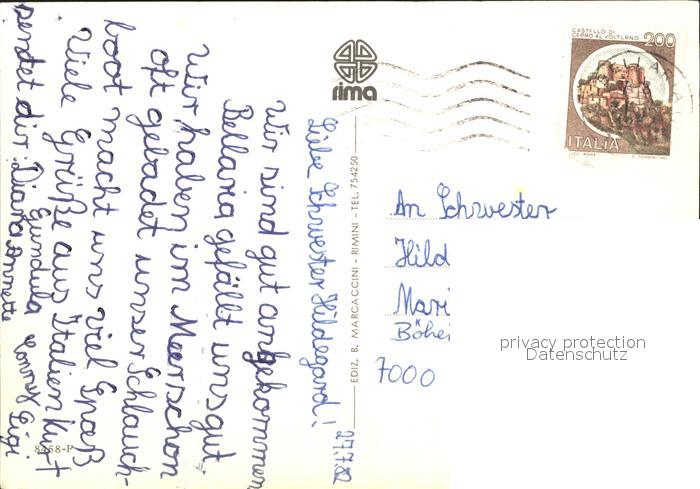 27.7.82
Liebe Schwester Hildegard!
Wir sind gut angekommen
Bellaria gefällt uns gut.
Wir haben im Meer schon
oft gebadet unser Schlauch-
boot macht uns viel Spaß
Viele Grüße aus Italien Kurt
sendet dir Diana Annette
Gundula Conny Gigi
8458-F
rima
EDIZ. B. MARCACCINI - RIMINI - TEL. 754250
CASTELLO DI
CERRO AL VOLTURNO 200
ITALIA
An Schwester
Hild
Mari
Böhei
7000
privacy protection
Datenschutz